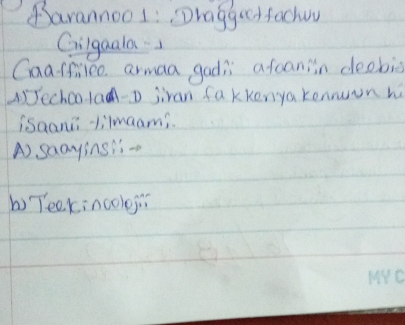 Barannoo 1: Dhaggeeffachuu
Gilgaala-1
Gaaffilee armaa gadii afaaniin deebis
1) Jechoota A-D jiran fakkenya kennuun hi
isaanii tilmaami.
A) saayinsii →
b) Teekinoolojii
MY C